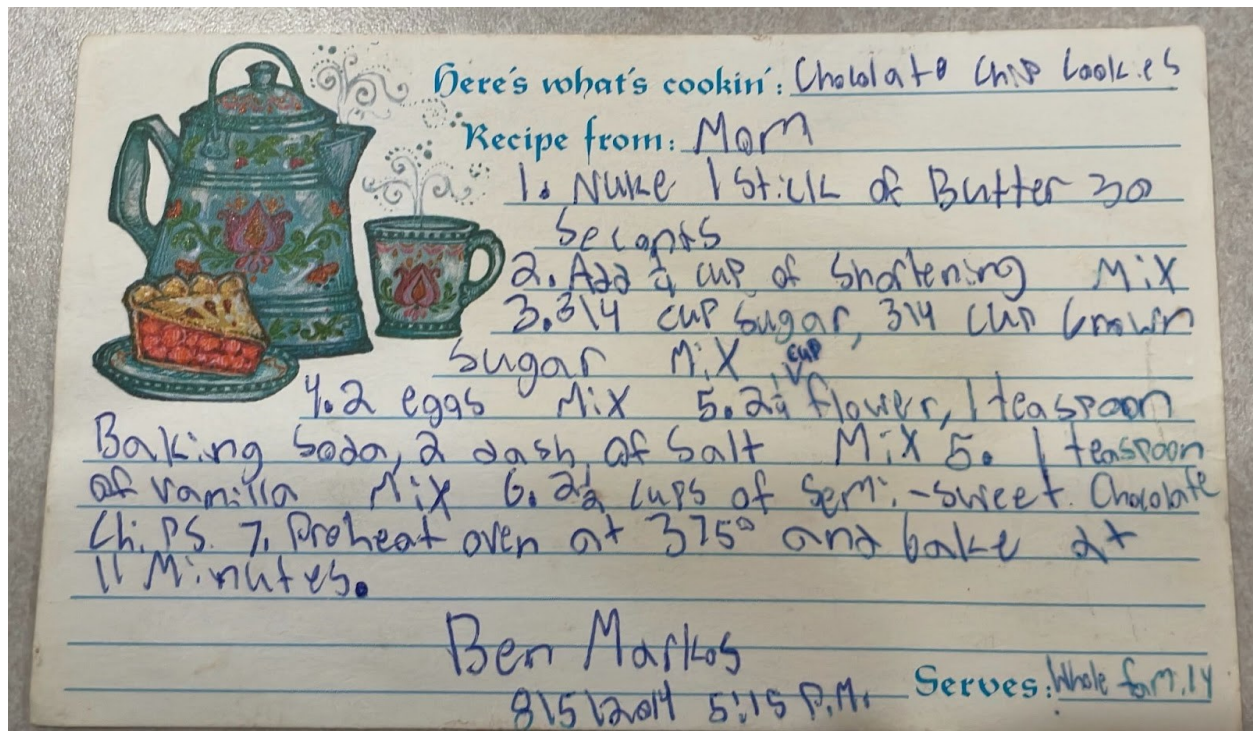 Here's what's cookin': Chocolate Chip Cookies
Recipe from: Mom
1. Nuke 1 Stick of Butter 30
Seconds
2. Add ¼ cup of Shortening Mix
3. 3/4 cup Sugar, 3/4 cup brown
Sugar Mix
4. 2 eggs Mix 5. 2¼ cup flower, 1 teaspoon
Baking Soda, 2 dash of Salt Mix 5. 1 teaspoon
of vanilla Mix 6. 2½ cups of Semi-sweet Chocolate
Chips. 7. Preheat oven at 375° and bake at
11 Minutes.
Ben Markos
8\5\2014 5:15 P.M.
Serves: Whole family